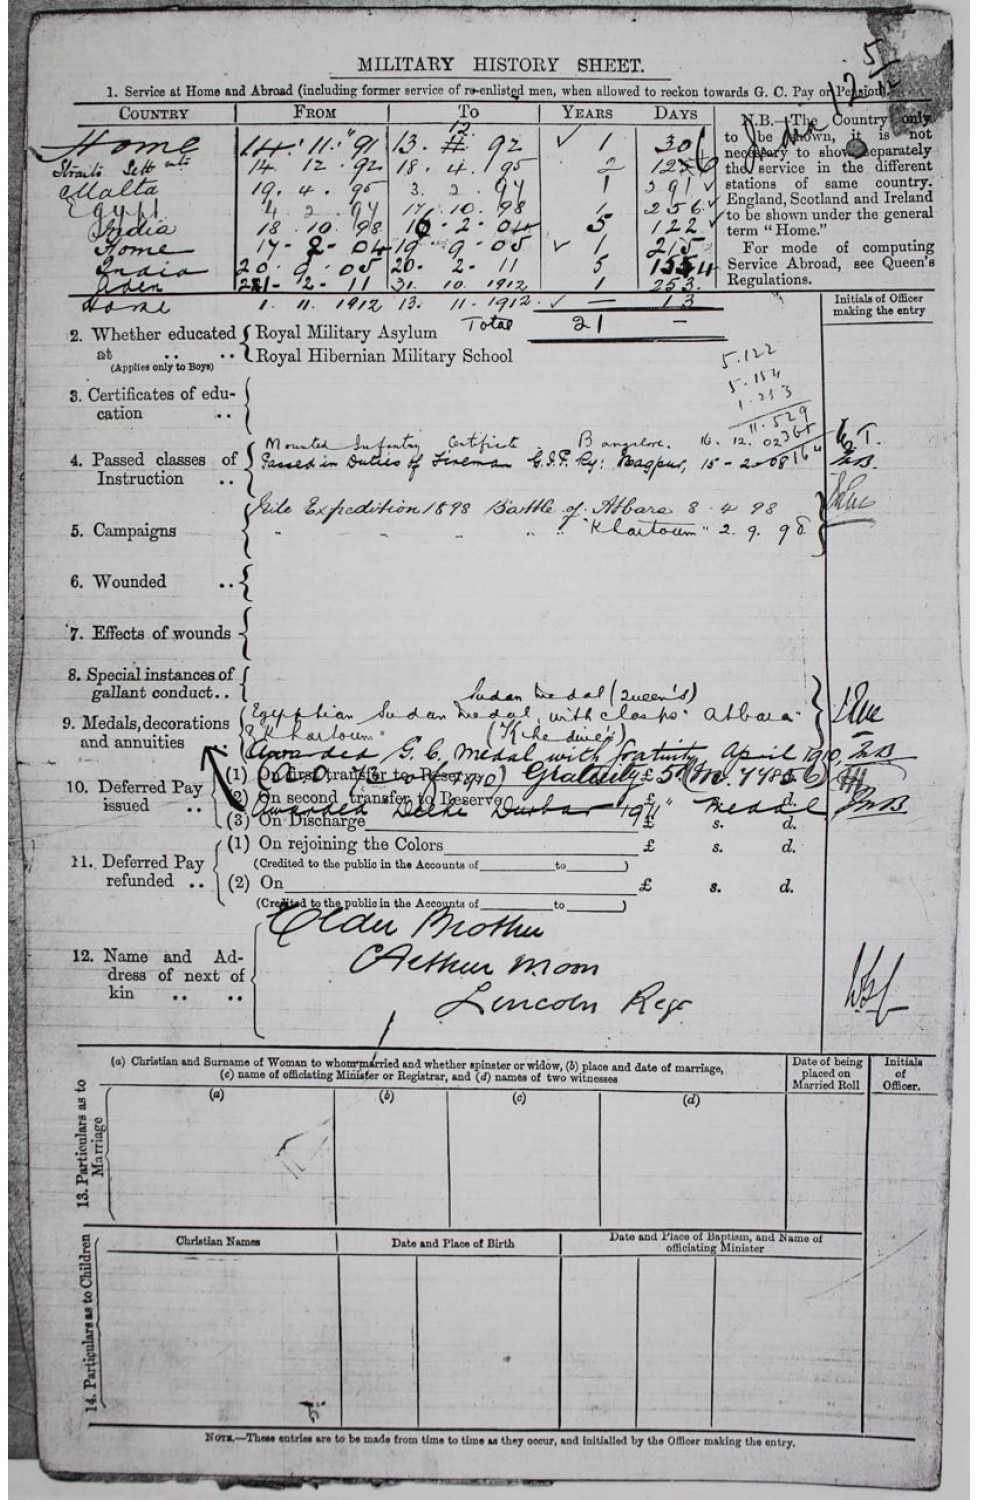 MILITARY HISTORY SHEET.
1. Service at Home and Abroad (including former service of re-enlisted men, when allowed to reckon towards G. C. Pay or Pension).
COUNTRY FROM TO YEARS DAYS
Home 14. 11. 91 13. 12 92 1 30
Straits Settmts 14. 12. 92 18. 4. 95 2
Malta 19. 4. 95 3. 2. 97 1 291
Egypt 4. 2. 97 17. 10. 98 1 256
India 18. 10. 98 16 - 2 - 04 5 122
Home 17 - 2 - 04 19 - 9 - 05 1 215
India 20 - 9 - 05 20 - 2 - 11 5 154
Aden 21 - 2 - 11 31. 10. 1912 1 253.
Home 1. 11. 1912 13. 11. 1912. — 13
Total 21 —
N.B.—The Country only
to be shown, it is not
necessary to show separately
the service in the different
stations of same country.
England, Scotland and Ireland
to be shown under the general
term "Home."
For mode of computing
Service Abroad, see Queen's
Regulations.
Initials of Officer
making the entry
2. Whether educated { Royal Military Asylum
at .. .. { Royal Hibernian Military School
(Applies only to Boys)
5.122
5.154
1.253
11.529
3. Certificates of edu-
cation ..
4. Passed classes of
Instruction ..
Mounted Infantry Certificate Bangalore. 16. 12. 02
Passed in Duties of Fireman G.I.P. Ry: Nagpur, 15 - 2 - 08
5. Campaigns
Nile Expedition 1898 Battle of Atbara 8. 4 98
" " " " "Khartoum" 2. 9. 98
6. Wounded ..
7. Effects of wounds
8. Special instances of
gallant conduct..
9. Medals, decorations
and annuities ..
Sudan medal (Queen's)
Egyptian Sudan medal, with clasps "Atbara"
& Khartoum" (Khedive's)
Awarded G. C. Medal with Gratuity April 1910.
Gratuity £5
Awarded Delhi Durbar 1911 Medal
10. Deferred Pay
issued ..
(1) On first transfer to Reserve
(2) On second transfer to Reserve £ s. d.
(3) On Discharge £ s. d.
11. Deferred Pay
refunded ..
(1) On rejoining the Colors £ s. d.
(Credited to the public in the Accounts of to )
(2) On £ s. d.
(Credited to the public in the Accounts of to )
12. Name and Ad-
dress of next of
kin .. ..
Elder Brother
Arthur Moon
Lincoln Regt
13. Particulars as to
Marriage
(a) Christian and Surname of Woman to whom married and whether spinster or widow, (b) place and date of marriage,
(c) name of officiating Minister or Registrar, and (d) names of two witnesses
Date of being
placed on
Married Roll
Initials
of
Officer.
(a) (b) (c) (d)
14. Particulars as to Children
Christian Names Date and Place of Birth Date and Place of Baptism, and Name of
officiating Minister
NOTE.—These entries are to be made from time to time as they occur, and initialled by the Officer making the entry.